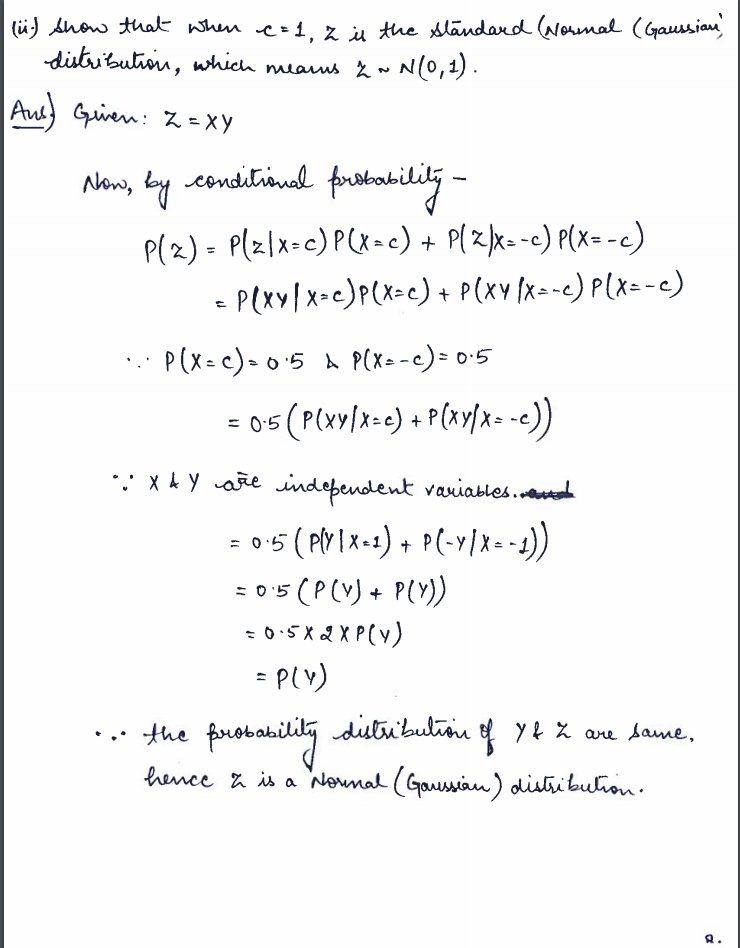 (ii) Show that when c=1, Z is the standard (Normal (Gaussian)
distribution, which means Z ~ N(0,1).
Ans) Given: Z = XY
Now, by conditional probability –
P(Z) = P(Z|X=c) P(X=c) + P(Z|X=-c) P(X=-c)
= P(XY|X=c)P(X=c) + P(XY|X=-c) P(X=-c)
∵ P(X=c)=0.5 & P(X=-c)=0.5
= 0.5 (P(XY|X=c) + P(XY|X=-c))
∵ X & Y are independent variables.
= 0.5 (P(Y|X=1) + P(-Y|X=-1))
= 0.5 (P(Y) + P(Y))
= 0.5 X 2 X P(Y)
= P(Y)
∵ the probability distribution of Y & Z are same,
hence Z is a Normal (Gaussian) distribution.